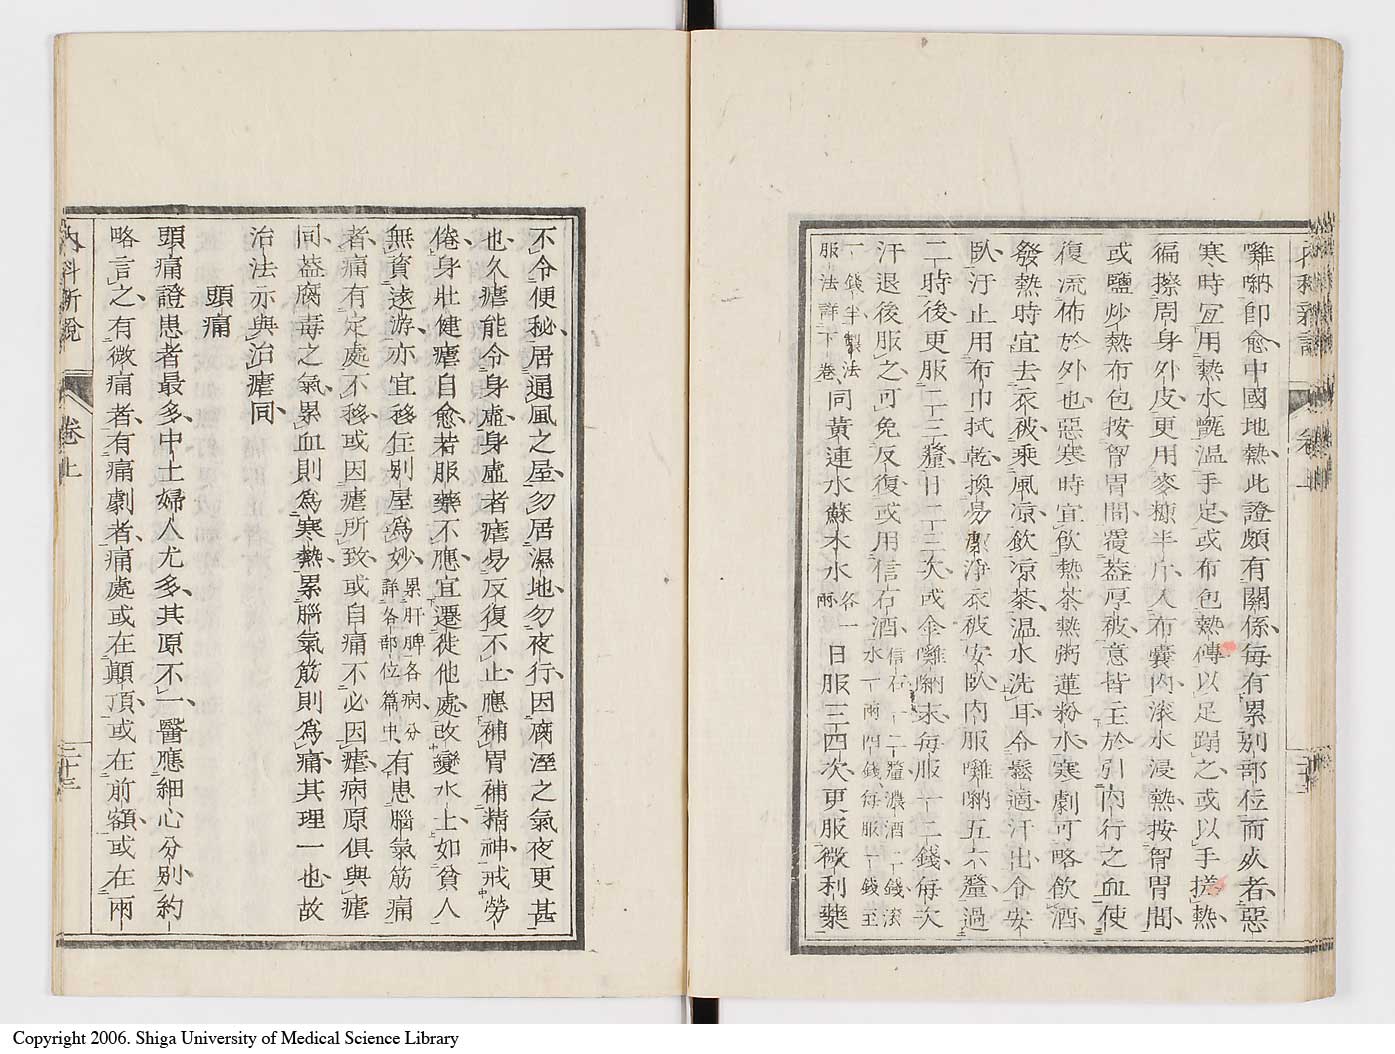 囉喲卽愈中國地熱此證頗有關係每有累別部位而死者惡
寒時宜用熱水甑溫手足或布包熱磚以足蹋之或以手搓熱
徧擦周身外皮更用麥糠半斤入布囊內滾水浸熱按胷胃間
或鹽炒熱布包按胷胃間覆蓋厚被意皆主於引內行之血使
復流佈於外也惡寒時宜飮熱茶熱粥蓮粉水寒劇可略飮酒
發熱時宜去衣被乘風凉飮凉茶溫水洗耳令鬆適汗出令安
臥汗止用布巾拭乾換易潔淨衣被安臥內服囉喲五六釐過
二時後更服二三釐日二三次或金囉喲末每服一二錢每次
汗退後服之可免反復或用信石酒信石一二釐濃酒一錢滾水一兩四錢每服一錢至
一錢半製法服法詳下卷同黃連水蘇木水各一兩日服三四次更服微利藥
不令便秘居通風之屋勿居濕地勿夜行因腐溼之氣夜更甚
也久瘧能令身虛身虛者瘧易反復不止應補胃補精神戒勞
倦身壯健瘧自愈若服藥不應宜遷徙他處改變水土如貧人
無資遠游亦宜移住別屋爲妙累肝脾各病分詳各部位篇中有患腦氣筋痛
者痛有定處不移或因瘧所致或自痛不必因瘧病原俱與瘧
同蓋腐毒之氣累血則爲寒熱累腦氣筋則爲痛其理一也故
治法亦與治瘧同
頭痛
頭痛證患者最多中土婦人尤多其原不一醫應細心分別約
略言之有微痛者有痛劇者痛處或在顚頂或在前額或在兩
內科新說
卷上
二十三
Copyright 2006. Shiga University of Medical Science Library